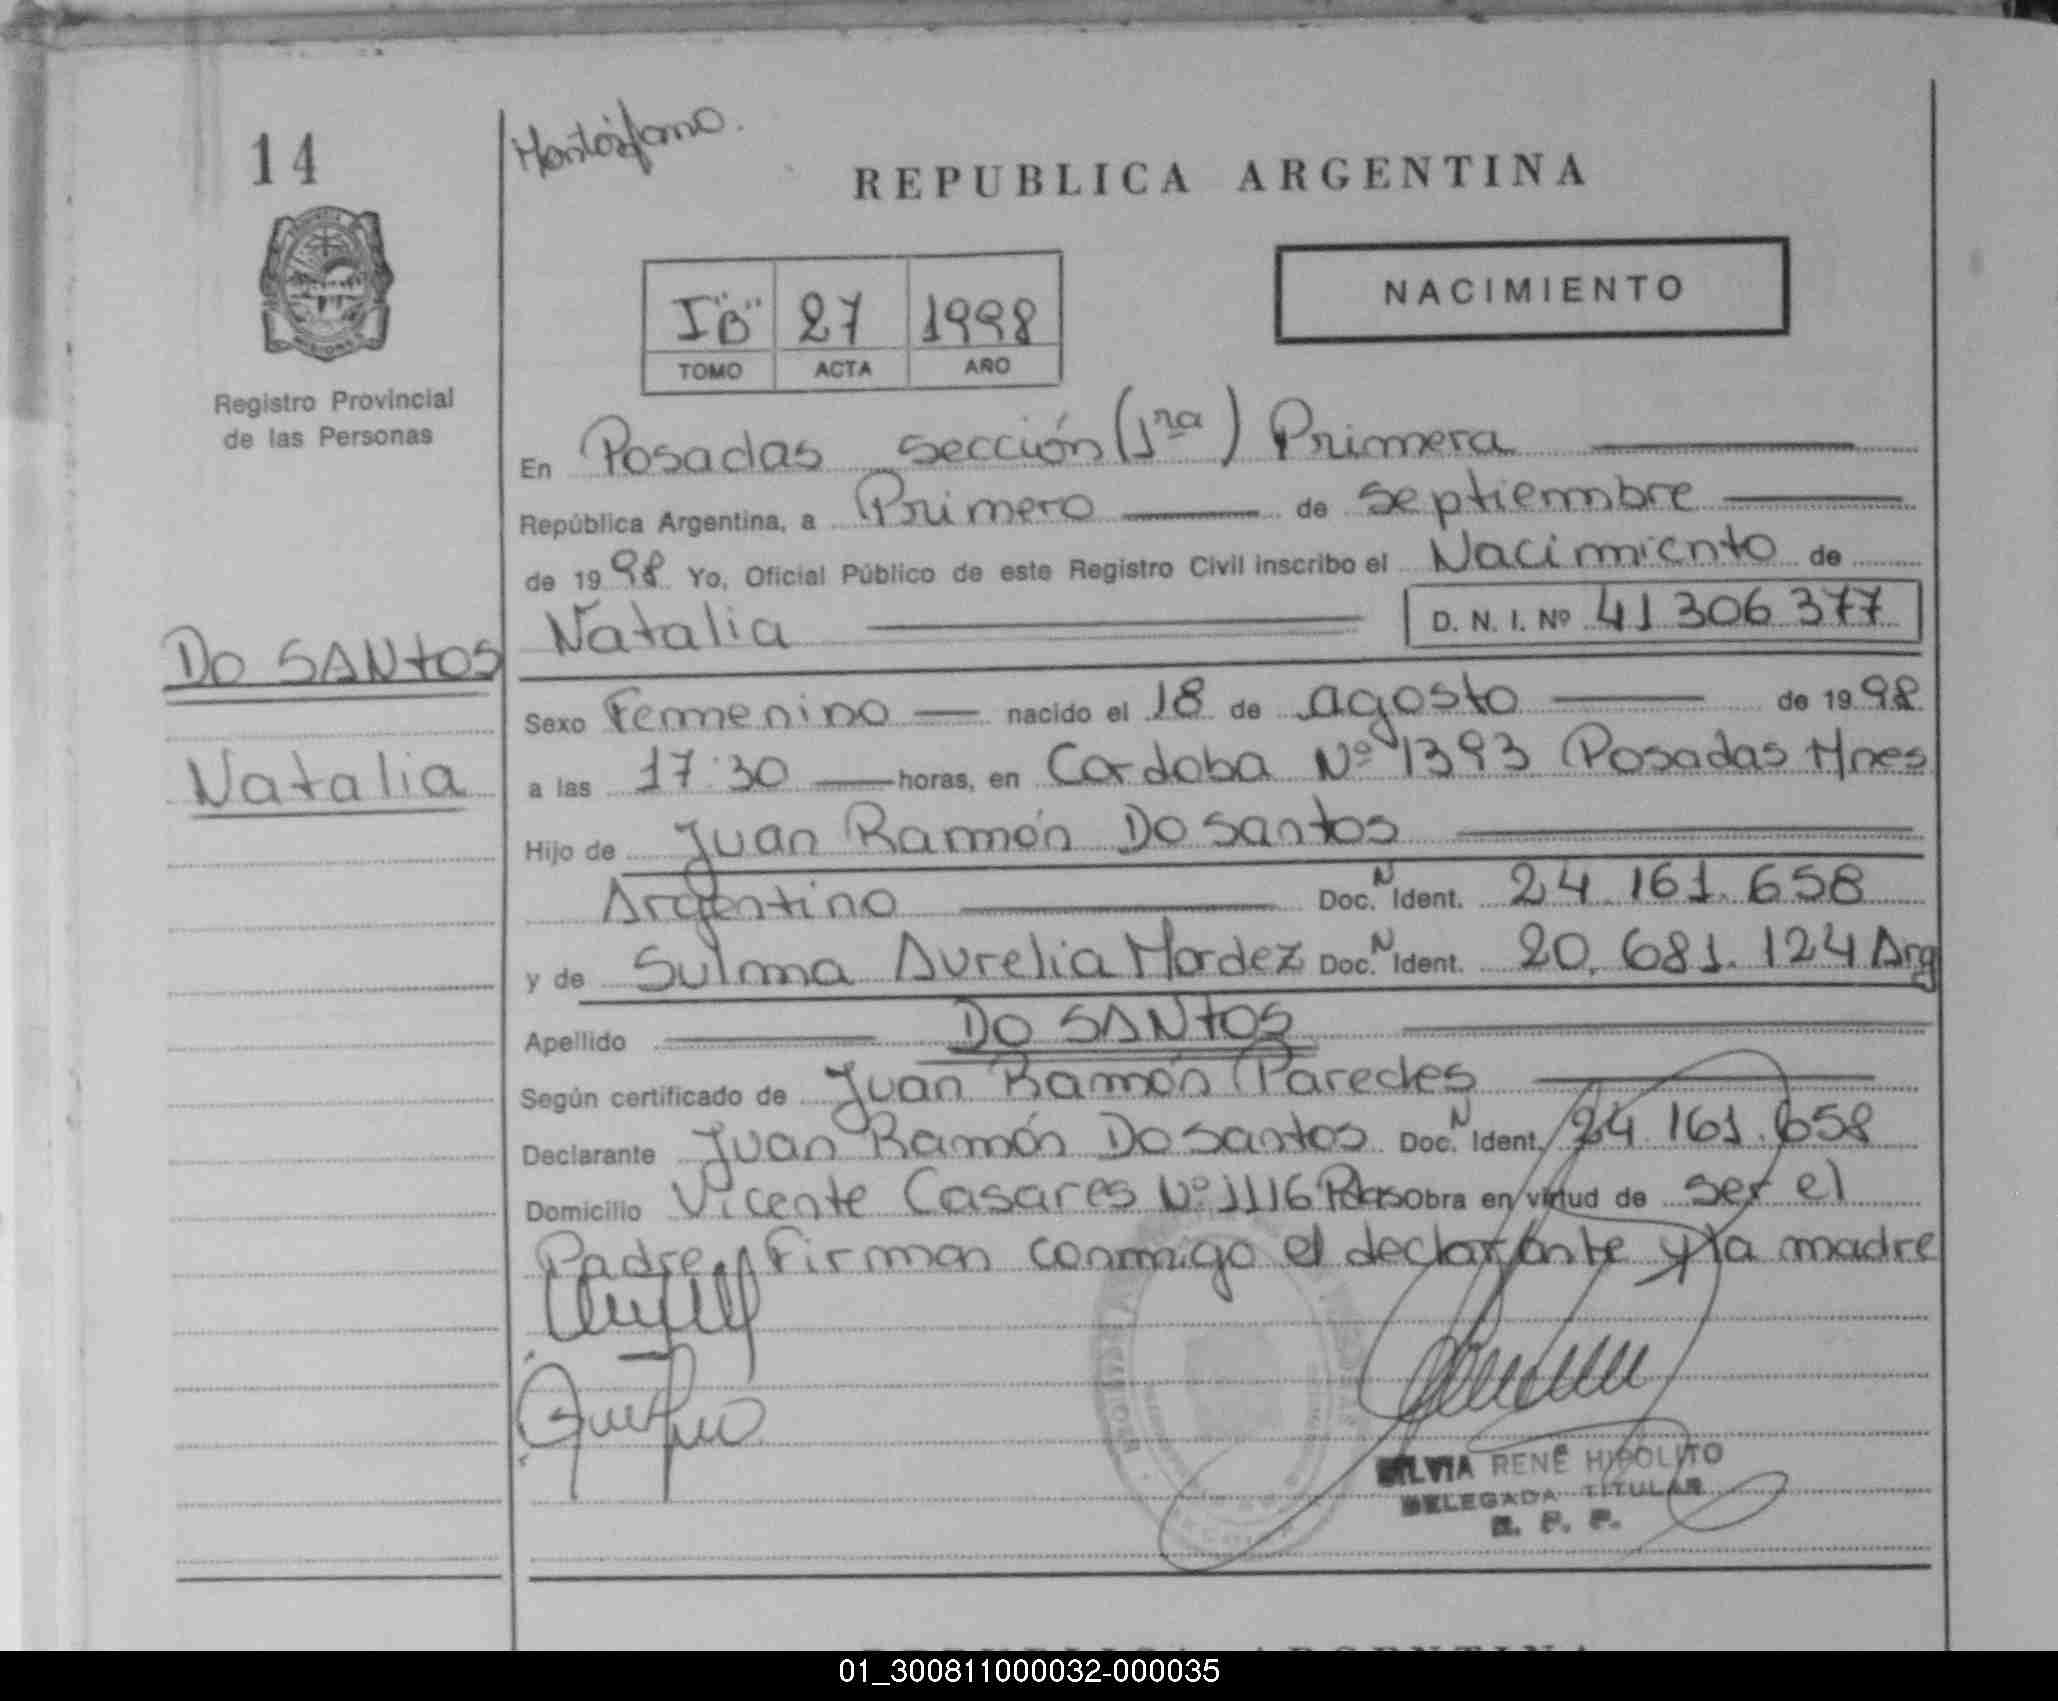 14
REPUBLICA ARGENTINA
NACIMIENTO
I "B" 27 1998
TOMO ACTA AÑO
Registro Provincial
de las Personas
En Posadas sección (1ra) Primera
República Argentina, a Primero de septiembre
de 1998 Yo, Oficial Público de este Registro Civil inscribo el Nacimiento de
Natalia D. N. I. Nº 41 306 377
DO SANtOS
Natalia
Sexo Femenino nacido el 18 de agosto de 1998
a las 17:30 horas, en Cordoba Nº 1393 Posadas Mnes
Hijo de Juan Ramón Do santos
Argentino Doc. N Ident. 24.161.658
y de Sulma Aurelia Mordez Doc. N Ident. 20.681.124 Arg
Apellido DO SANtOS
Según certificado de Juan Ramón Paredes
Declarante Juan Ramón Do santos Doc. N Ident. 24.161.658
Domicilio Vicente Casares Nº 1116 Pdas Obra en virtud de ser el
Padre, Firman conmigo el declarante y la madre
SILVIA RENÉ HIPOLITO
DELEGADA TITULAR
R. P. P.
REPUBLICA ARGENTINA
01_300811000032-000035